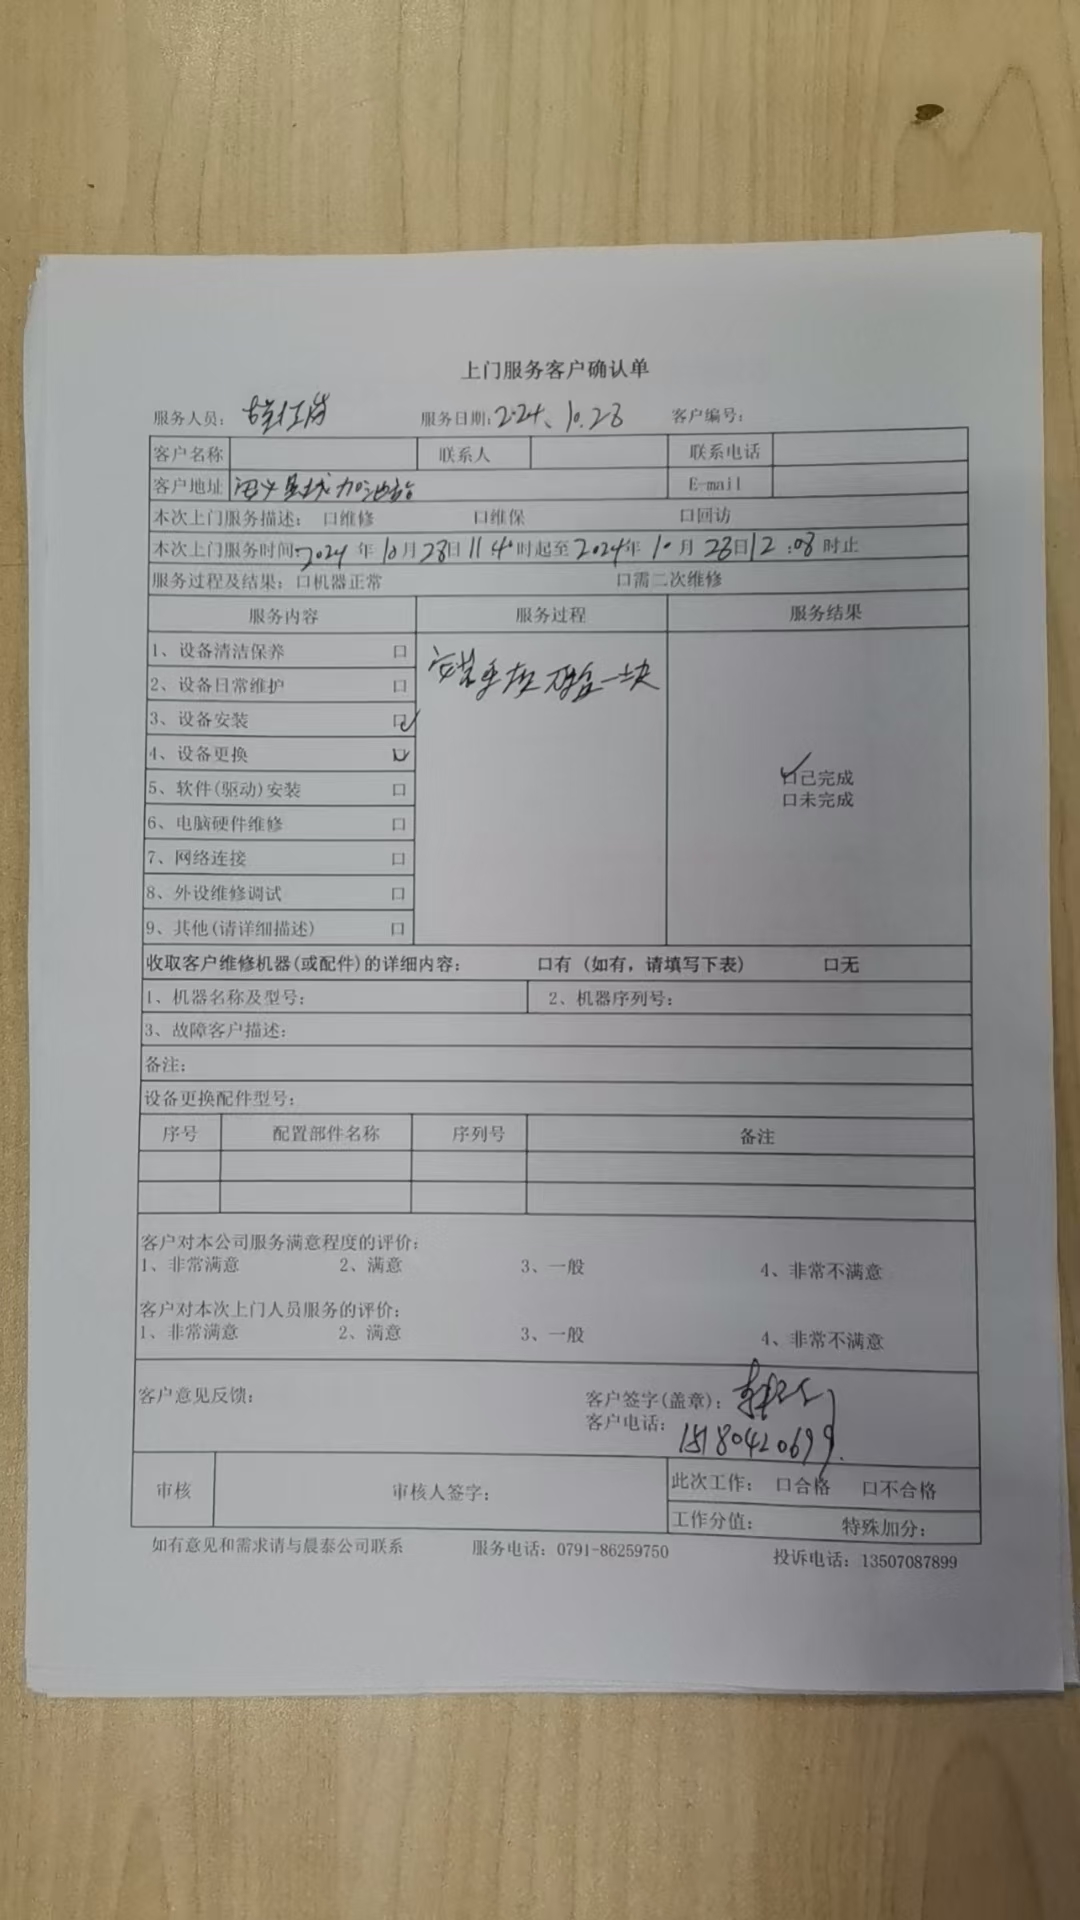 上门服务客户确认单
服务人员： 服务日期：2024、10.28 客户编号：
客户名称 联系人 联系电话
客户地址 加油站 E-mail
本次上门服务描述： 口维修 口维保 口回访
本次上门服务时间：2024年10月28日11 4°时起至2024年10月28日12:08时止
服务过程及结果：口机器正常 口需二次维修
服务内容 服务过程 服务结果
1、设备清洁保养 口
安装 一块
2、设备日常维护 口
3、设备安装 口✓
4、设备更换 口✓
✓口已完成
5、软件(驱动)安装 口
口未完成
6、电脑硬件维修 口
7、网络连接 口
8、外设维修调试 口
9、其他(请详细描述) 口
收取客户维修机器(或配件)的详细内容： 口有（如有，请填写下表） 口无
1、机器名称及型号： 2、机器序列号：
3、故障客户描述：
备注：
设备更换配件型号：
序号 配置部件名称 序列号 备注
客户对本公司服务满意程度的评价：
1、非常满意 2、满意 3、一般 4、非常不满意
客户对本次上门人员服务的评价：
1、非常满意 2、满意 3、一般 4、非常不满意
客户意见反馈： 客户签字(盖章)：
客户电话：15180420699.
审核 审核人签字： 此次工作： 口合格 口不合格
工作分值： 特殊加分：
如有意见和需求请与晨泰公司联系 服务电话：0791-86259750 投诉电话：13507087899